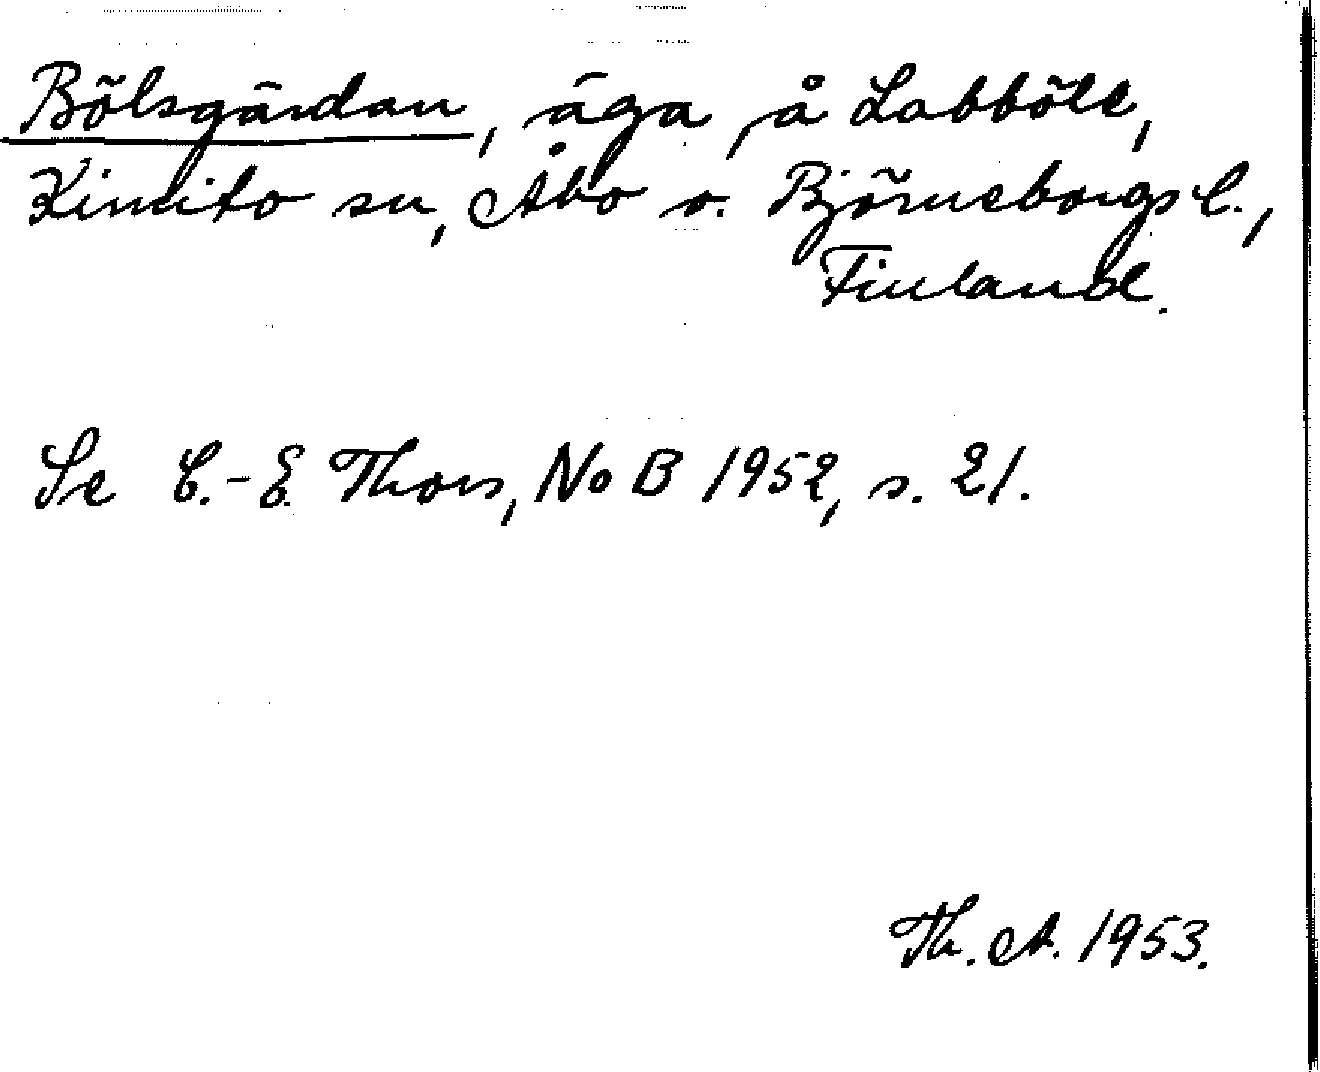 Bölsgärdan, äga å Labböle,
Kimito sn, Åbo o. Björneborgs l.,
Finland.
Se C.-E. Thors, NoB 1952, s. 21.
Th. A. 1953.